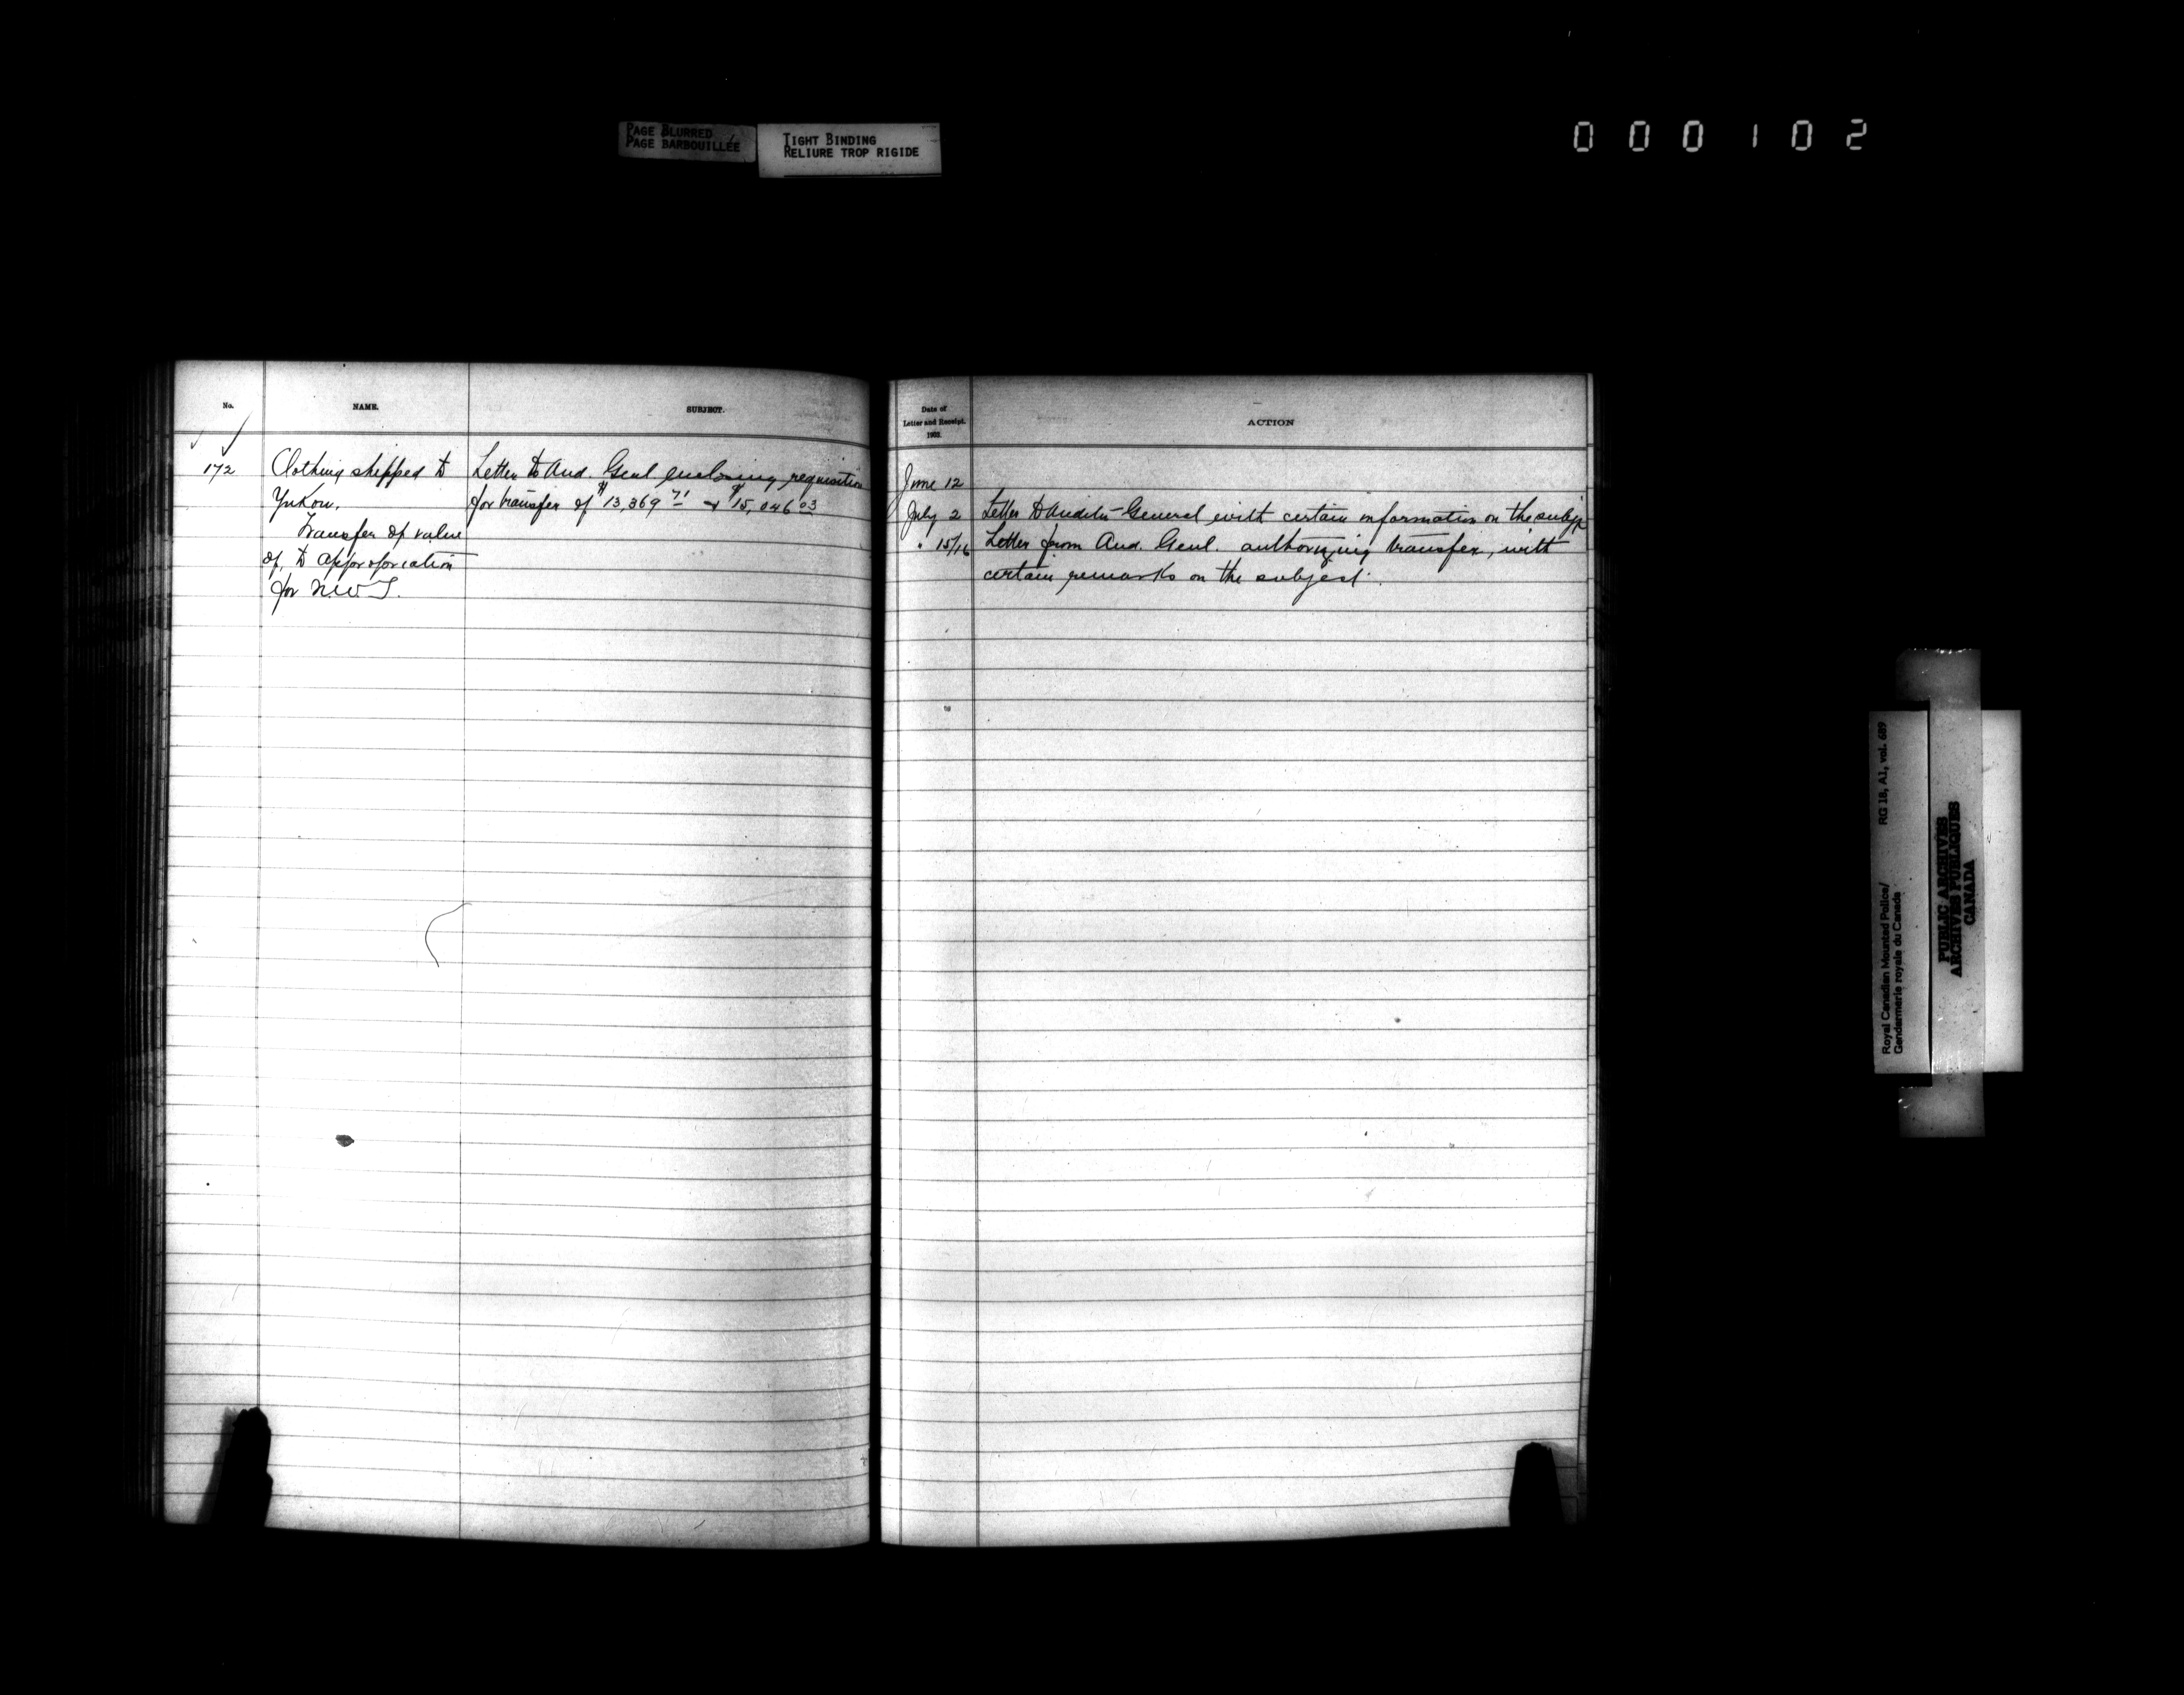 PAGE BLURRED
PAGE BARBOUILLÉE
TIGHT BINDING
RELIURE TROP RIGIDE
000102
No.
NAME.
SUBJECT.
172
Clothing shipped to
Yukon.
Transfer of value
of, to appropriation
for N.W.T.
Letter to Aud. Genl enclosing requisition
for transfer of $13,369 71 + $15,046 03
Date of
Letter and Receipt.
1902.
ACTION
June 12
July 2 Letter to Auditor-General with certain information on the subjt
" 15/16 Letter from Aud. Genl. authorizing transfer, with
certain remarks on the subject.
Royal Canadian Mounted Police/
Gendarmerie royale du Canada
RG 18, A1, vol. 689
PUBLIC ARCHIVES
ARCHIVES PUBLIQUES
CANADA